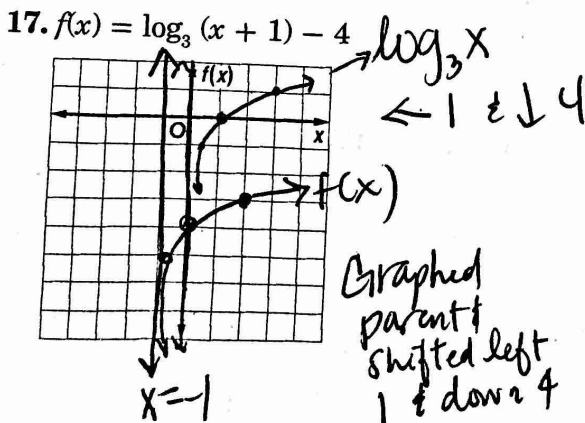 17. f(x) = log₃ (x + 1) − 4
log₃x
← 1 & ↓ 4
f(x)
O
x
f(x)
Graphed
parent &
shifted left
1 & down 4
x=-1